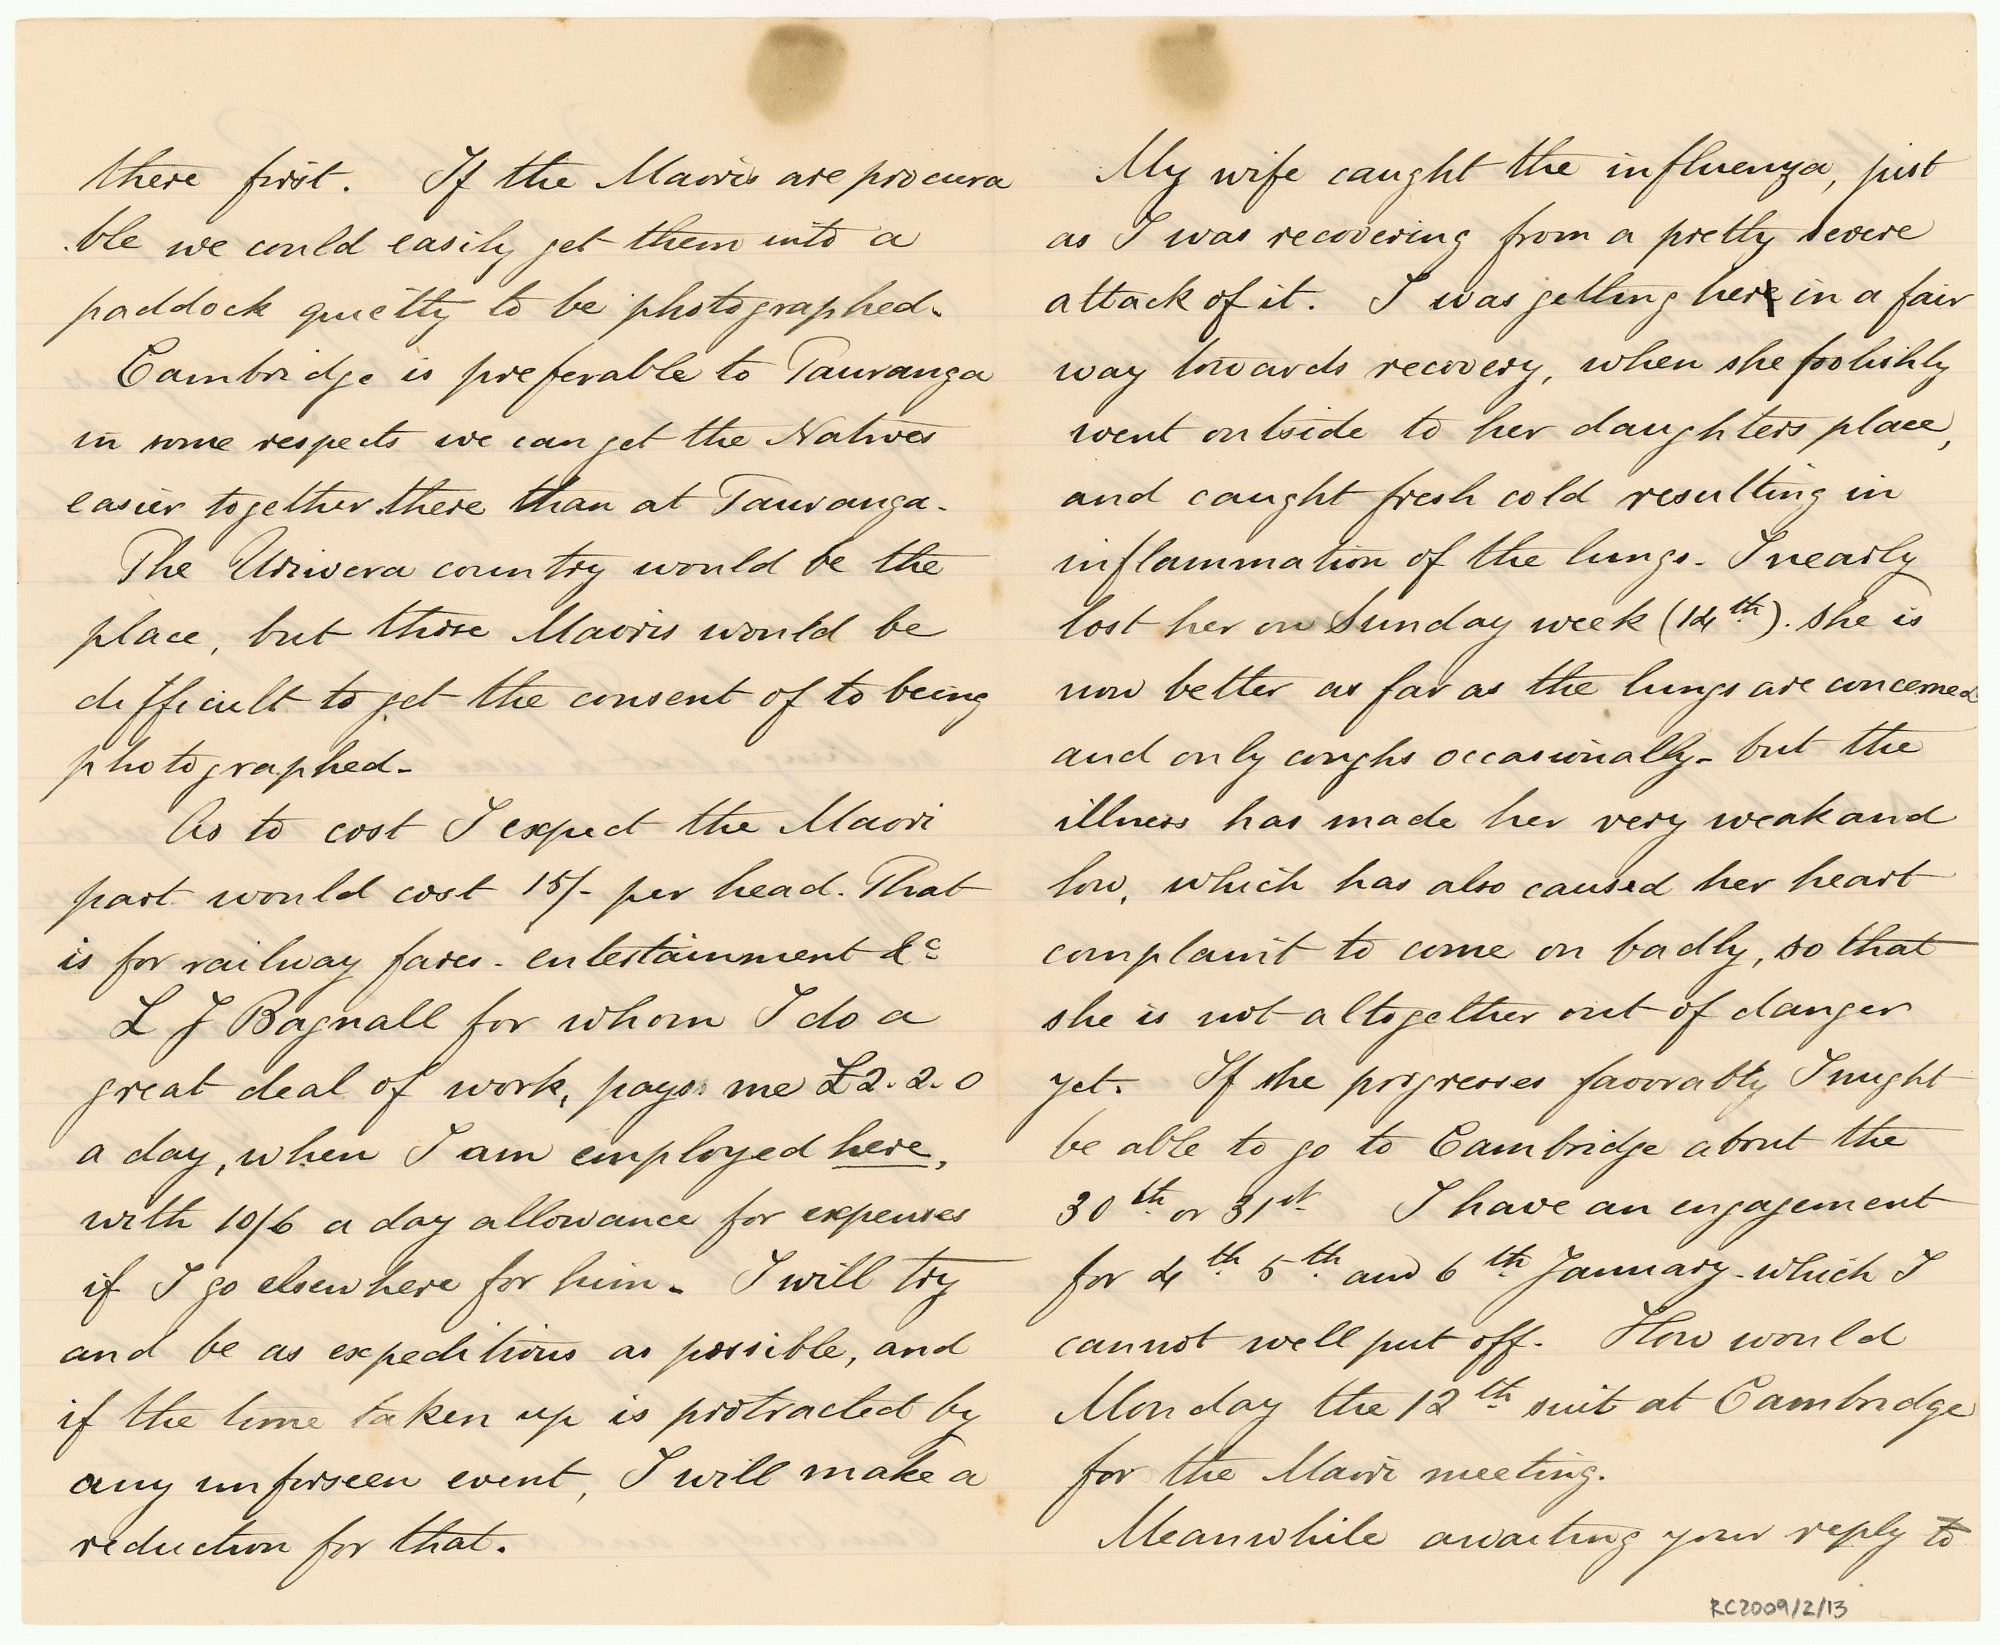 there first. If the Maoris are procura
ble we could easily get them into a
paddock quietly to be photographed.
Cambridge is preferable to Tauranga
in some respects we can get the Natives
easier together there than at Tauranga.
The Uriwera country would be the
place, but those Maoris would be
difficult to get the consent of to being
photographed.
As to cost I expect the Maori
part would cost 15/- per head. That
is for railway fares - entertainment &c
L J Bagnall for whom I do a
great deal of work, pays me £2.2.0
a day, when I am employed here,
with 10/6 a day allowance for expenses
if I go elsewhere for him. I will try
and be as expeditious as possible, and
if the time taken up is protracted by
any unforseen event, I will make a
reduction for that.
My wife caught the influenza, just
as I was recovering from a pretty severe
attack of it. I was getting her in a fair
way towards recovery, when she foolishly
went outside to her daughters place,
and caught fresh cold resulting in
inflammation of the lungs. I nearly
lost her on Sunday week (14th). She is
now better as far as the lungs are concerned
and only coughs occasionally - but the
illness has made her very weak and
low, which has also caused her heart
complaint to come on badly, so that
she is not altogether out of danger
yet. If she progresses favorably I might
be able to go to Cambridge about the
30th or 31st I have an engagement
for 4th 5th and 6th January - which I
cannot well put off. How would
Monday the 12th suit at Cambridge
for the Maori meeting.
Meanwhile awaiting your reply to
RC2009/2/13